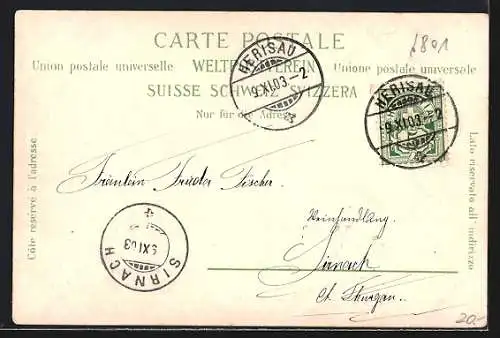 CARTE POSTALE
1891
Union postale universelle WELTPOSTVEREIN Unione postale universale
SUISSE SCHWEIZ SVIZZERA
Nur für die Adresse
HERISAU
9.XI.03-2
HERISAU
9.XI.03-2
Côté réservé à l'adresse
Lato riservato all' indirizzo
Fräulein Frieda Fischer.
Weinhandlung.
Sirnach
Ct. Thurgau.
SIRNACH
9.XI.03
20.-